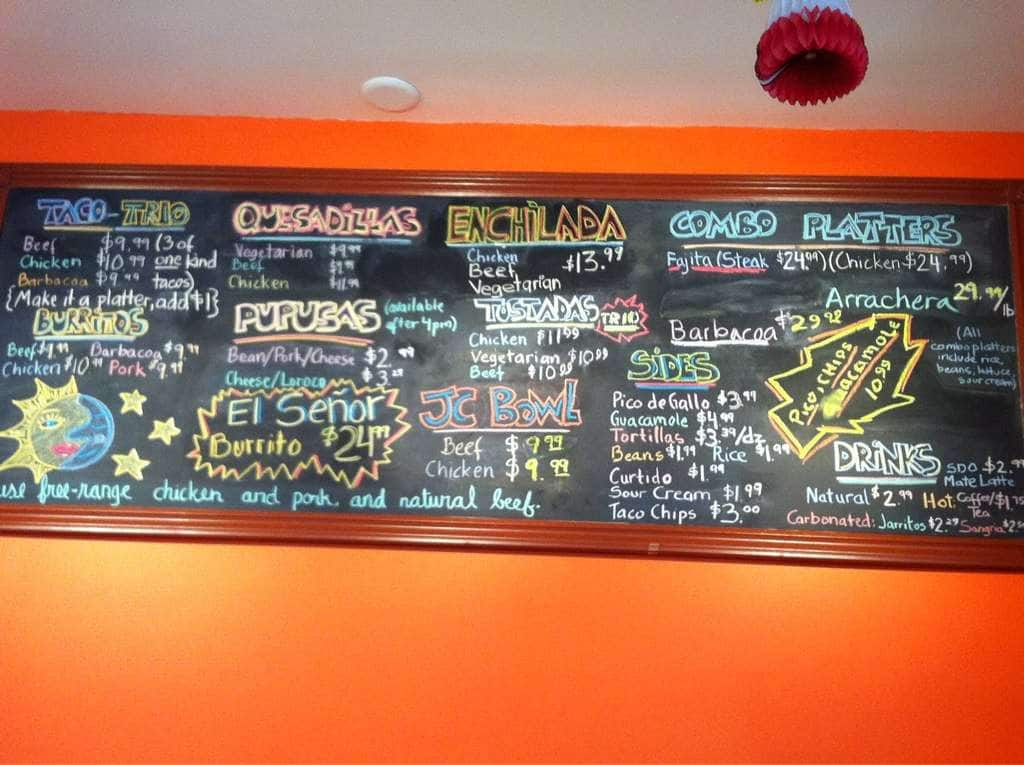 TACO-TRIO
Beef $9.99 (3 of
Chicken $10.99 one kind
Barbacoa $9.99 tacos)
{Make it a platter, add $1}
BURRITOS
Beef $9.99 Barbacoa $9.99
Chicken $10.99 Pork $9.99
QUESADILLAS
Vegetarian $9.99
Beef $9.99
Chicken $11.99
PUPUSAS (available
after 4pm)
Bean/Pork/Cheese $2.99
Cheese/Loroco $3.25
El Señor
Burrito $24.99
use free-range chicken and pork, and natural beef.
ENCHILADA
Chicken
Beef $13.99
Vegetarian
TOSTADAS
TRIO
Chicken $11.99
Vegetarian $10.99
Beef $10.99
JC BOWL
Beef $9.99
Chicken $9.99
COMBO PLATTERS
Fajita (Steak $24.99) (Chicken $24.99)
Arrachera 29.99/lb
Barbacoa $29.98
(All
combo platters
include rice,
beans, lettuce,
sour cream)
SIDES
Pico de Gallo $3.99
Guacamole $4.99
Tortillas $3.39/dz
Beans $1.99 Rice $1.99
Curtido $1.99
Sour Cream $1.99
Taco Chips $3.00
Pico, CHIPS
Guacamole
10.99
DRINKS
Natural $2.99
Hot: Coffee/Tea $1.75
Mate Latte
Carbonated: Jarritos $2.25 Sangria